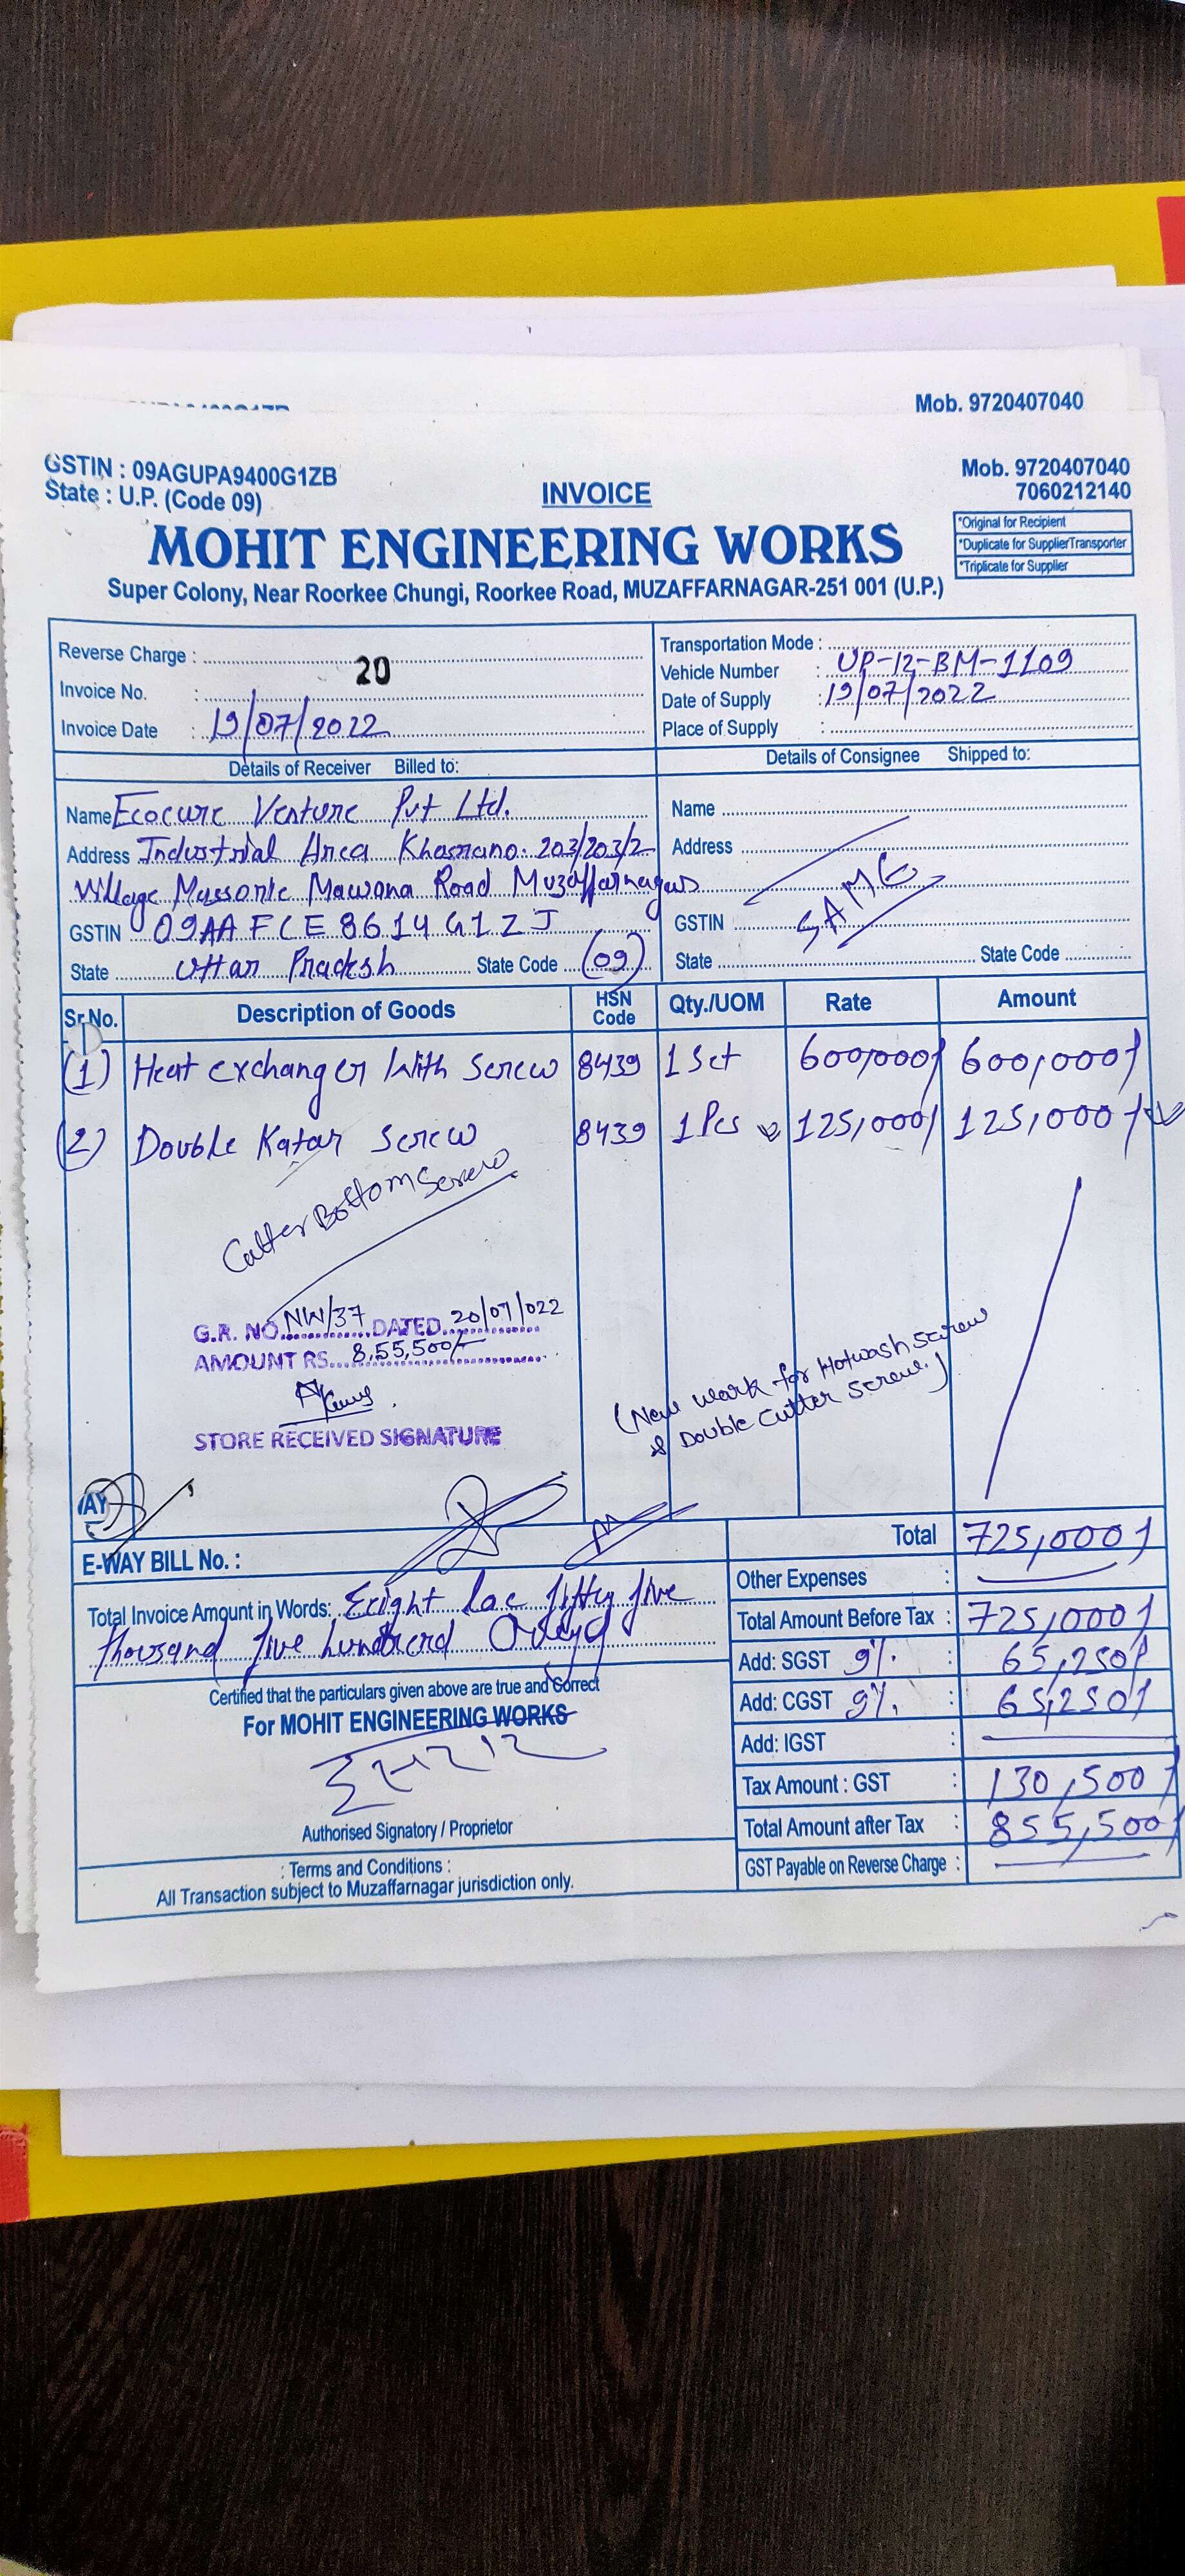 Mob. 9720407040
GSTIN : 09AGUPA9400G1ZB
State : U.P. (Code 09)
INVOICE
Mob. 9720407040
7060212140
*Original for Recipient
*Duplicate for SupplierTransporter
*Triplicate for Supplier
MOHIT ENGINEERING WORKS
Super Colony, Near Roorkee Chungi, Roorkee Road, MUZAFFARNAGAR-251 001 (U.P.)
Reverse Charge :
Invoice No. : 20
Invoice Date : 19/07/2022
Transportation Mode :
Vehicle Number : UP-12-BM-1109
Date of Supply : 19/07/2022
Place of Supply :
Details of Receiver Billed to:
Details of Consignee Shipped to:
Name Ecocure Venture Pvt Ltd.
Address Industrial Area Khasrano. 203/203/2
Village Mussorie Mawana Road Muzaffarnagar
GSTIN 09AAFCE8614G1ZJ
State Uttar Pradesh State Code (09)
Name
Address
SAME
GSTIN
State State Code
Sr.No. Description of Goods HSN Code Qty./UOM Rate Amount
(1) Heat exchanger With Screw 8439 1 Set 600,000/ 600,000/
(2) Double Katar Screw 8439 1 Pcs 125,000/ 125,000/
Cutter Bottom Screw
G.R. NO. NW/37 DATED 20/07/022
AMOUNT RS. 8,55,500/-
STORE RECEIVED SIGNATURE
(New work for Hotwash Screw
& Double Cutter Screw.)
E-WAY BILL No. :
Total Invoice Amount in Words: Eright lac fifty five
thousand five hundrerd Only
Certified that the particulars given above are true and Correct
For MOHIT ENGINEERING WORKS
Authorised Signatory / Proprietor
: Terms and Conditions :
All Transaction subject to Muzaffarnagar jurisdiction only.
Total 725,000/
Other Expenses :
Total Amount Before Tax : 725,000/
Add: SGST 9%. : 65,250/
Add: CGST 9%. : 65,250/
Add: IGST :
Tax Amount : GST : 130,500/
Total Amount after Tax : 855,500/
GST Payable on Reverse Charge :